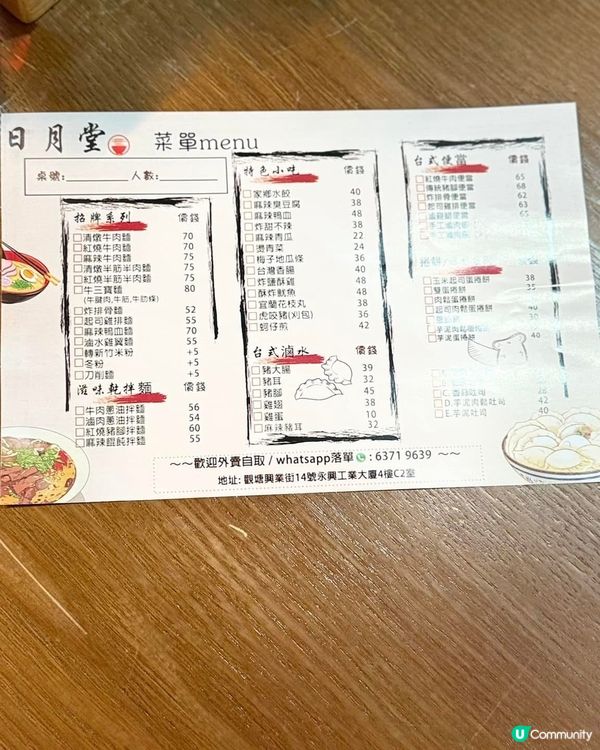 日月堂 菜單menu
桌號:________ 人數:________
招牌系列 價錢
清燉牛肉麵 70
紅燒牛肉麵 70
麻辣牛肉麵 75
清燉半筋半肉麵 75
紅燒半筋半肉麵 75
牛三寶麵 80
(牛腱肉,牛筋,牛肋條)
炸排骨麵 52
起司雞排麵 55
麻辣鴨血麵 70
滷水雞翼麵 55
轉新竹米粉 +5
冬粉 +5
刀削麵 +5
滋味乾拌麵 價錢
牛肉蔥油拌麵 56
滷肉蔥油拌麵 54
紅燒豬腳拌麵 60
麻辣餛飩拌麵 55
特色小吃 價錢
家鄉水餃 40
麻辣臭豆腐 38
麻辣鴨血 48
炸甜不辣 38
麻辣青瓜 22
燙青菜 24
梅子地瓜條 36
台灣香腸 40
炸鹽酥雞 48
酥炸魷魚 48
宜蘭花枝丸 38
虎咬豬(刈包) 36
蚵仔煎 42
台式滷水 價錢
豬大腸 39
豬耳 32
豬腳 45
雞翅 38
雞蛋 10
麻辣豬耳 32
台式便當 價錢
紅燒牛肉便當 65
傳統豬腳便當 68
炸排骨便當 62
起司雞排便當 63
滷雞腿便當 65
價錢
玉米起司蛋捲餅 38
雙蛋捲餅 35
肉鬆蛋捲餅
起司肉鬆蛋捲餅 40
芋泥肉鬆蛋捲餅
芋泥蛋捲餅 40
C.香蒜吐司 28
D.芋泥肉鬆吐司 42
E.芋泥吐司 40
~~歡迎外賣自取 / whatsapp落單 : 6371 9639 ~~
地址: 觀塘興業街14號永興工業大廈4樓C2室
U Community